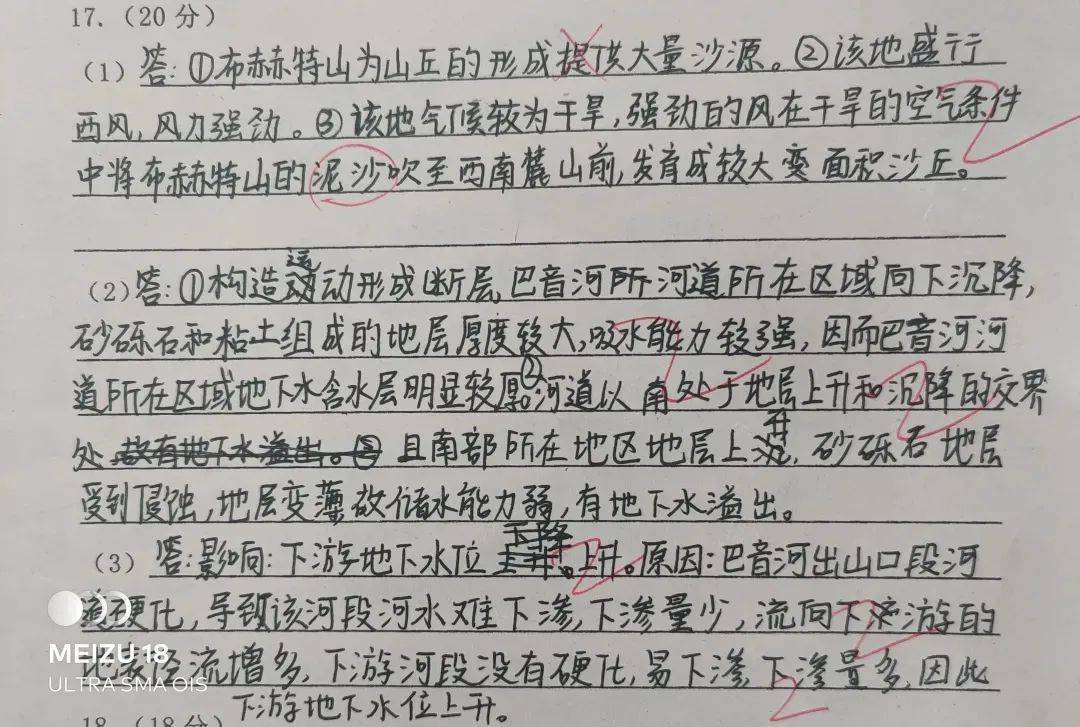 17.（20分）
（1）答:①布赫特山为山丘的形成提供大量沙源。②该地盛行
西风,风力强劲。③该地气候较为干旱,强劲的风在干旱的空气条件
中将布赫特山的泥沙吹至西南麓山前,发育成较大变面积沙丘。
（2）答:①构造运动形成断层,巴音河所河道所在区域向下沉降,
砂砾石和粘土组成的地层厚度较大,吸水能力较强,因而巴音河河
道所在区域地下水含水层明显较厚。②河道以南处于地层上升和沉降的交界
处故有地下水溢出。③且南部所在地区地层上升,砂砾石地层
受到侵蚀,地层变薄故储水能力弱,有地下水溢出。
（3）答:影响:下游地下水位上升。原因:巴音河出山口段河
道硬化,导致该河段河水难下渗,下渗量少,流向下游的
径流增多,下游河段没有硬化,易下渗,下渗量多,因此
下游地下水位上升。
MEIZU 18
ULTRA SMA OIS
18.（18分）